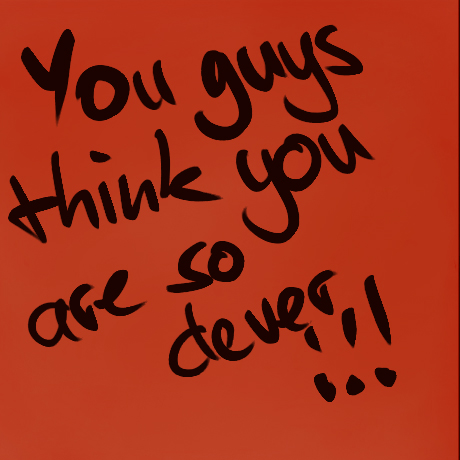 You guys
think you
are so
clever!!!